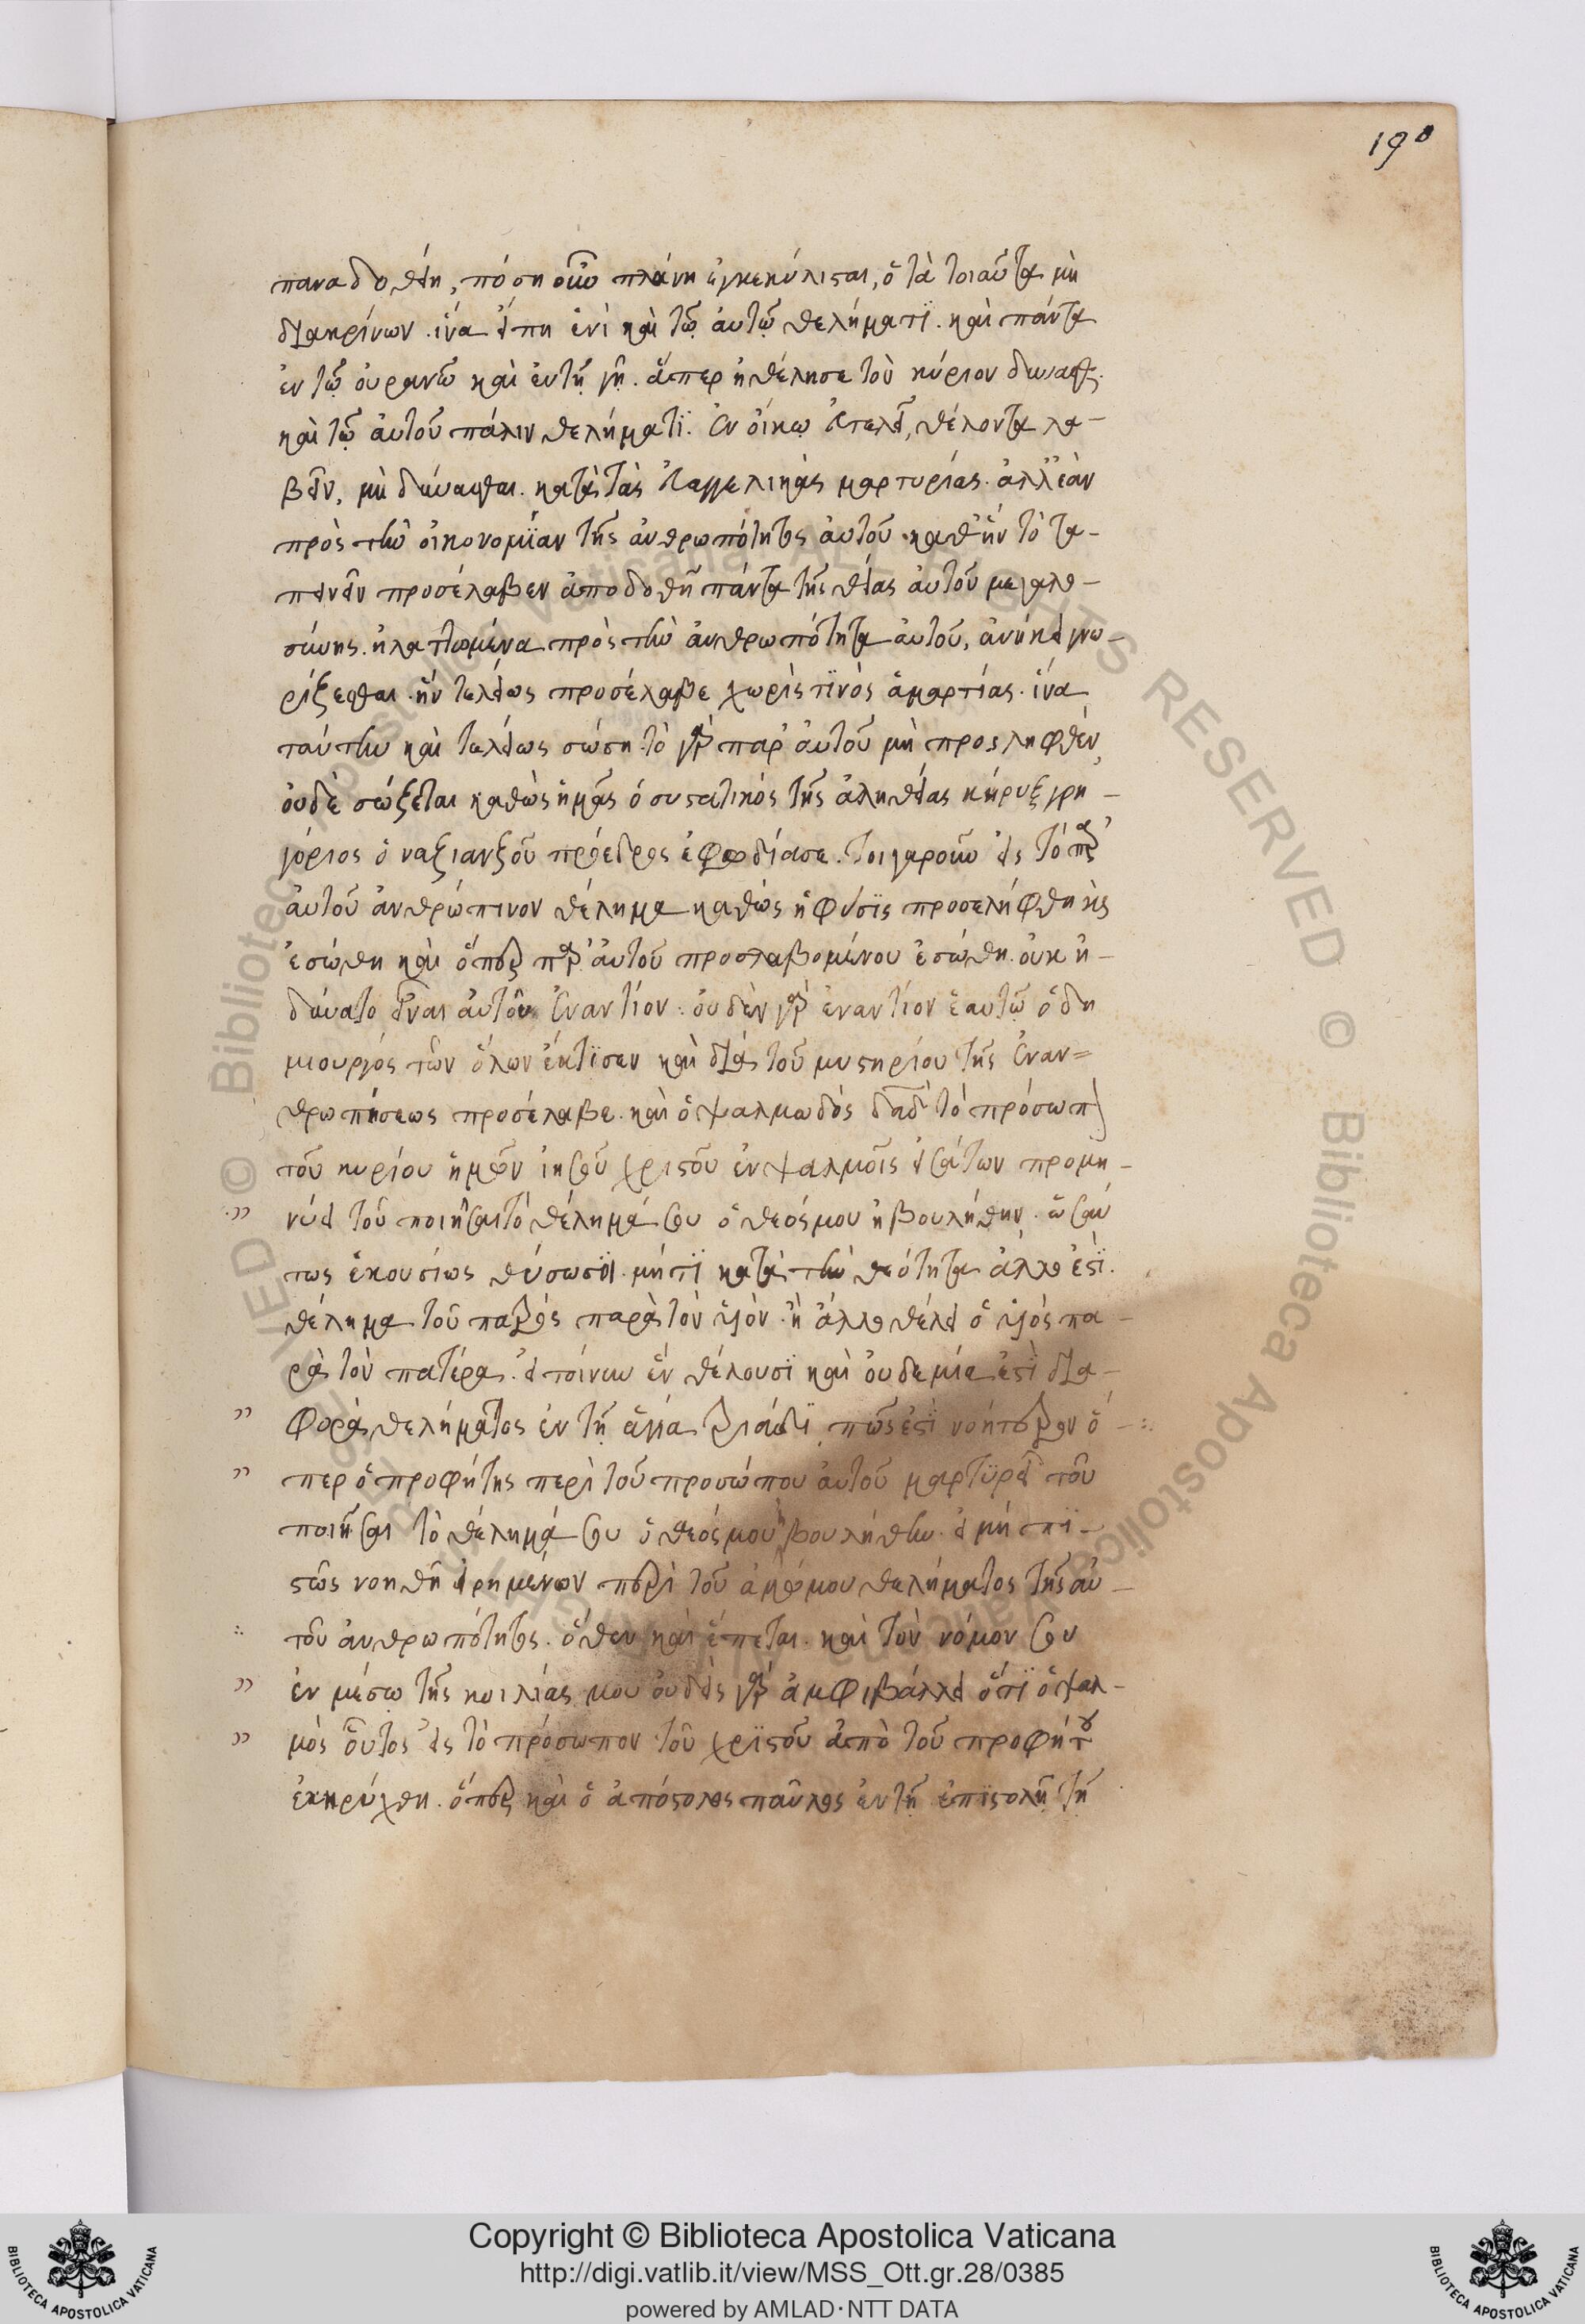 190
παναδοθείη, πόση οὖν πλάνη ἐγκεκύλισται, ὁ τὰ τοιαῦτα μὴ
διακρίνων. ἵνα εἴπη ἑνὶ καὶ τῷ αὐτῷ θελήματϊ. καὶ πάντα
ἐν τῷ οὐρανῶ καὶ ἐν τῇ γῇ. ἅπερ ἠθέλησε τὸν κύριον δυνασθαι.
καὶ τῷ αὐτοῦ πάλιν θελήματϊ. ἐν οἴκῳ εὐτελεῖ, θέλοντα λα–
βεῖν, μὴ δύνασθαι. κατὰ τὰς εὐαγγελικὰς μαρτυρίας. ἀλλ' ἐὰν
πρὸς τὴν οἰκονομίαν τῆς ἀνθρωπότητος αὐτοῦ. καθ' ἣν τὸ τα–
πεινὸν προσέλαβεν ἀποδοθῆ πάντα τῆς θείας αὐτοῦ μεγαλο–
σύνης. ἠλαττωμένα πρὸς τὴν ἀνθρωπότητα αὐτοῦ, ἀνήκει γνω–
ρίζεσθαι. ἣν τελείως προσέλαβε χωρὶς τϊνὸς ἁμαρτίας. ἵνα
ταύτην καὶ τελείως σώση. τὸ γὰρ παρ' αὐτοῦ μὴ προςληφθὲν,
οὐδὲ σώζεται καθὼς ἡμᾶς ὁ συστατικὸς τῆς ἀληθείας κήρυξ γρη–
γόριος ὁ ναζιανζοῦ πρόεδρος ἐφωδίασε. τοιγαροῦν εἰς τὸ παρ'
αὐτοῦ ἀνθρώπινον θέλημα καθὼς ἡ φύσϊς προσελήφθη καὶ
ἐσώθη καὶ ὅπερ παρ' αὐτοῦ προσλαβομένου ἐσώθη. οὐκ ἠ–
δύνατο εἶναι αὐτοῦ ἐναντίον. οὐδὲν γὰρ ἐναντίον ἑαυτῷ ὁ δη
μιουργὸς τῶν ὅλων ἔκτϊσεν καὶ διὰ τοῦ μυστηρίου τῆς ἐναν=
θρωπήσεως προσέλαβε. καὶ ὁ ψαλμωδὸς δαδ τὸ πρόσωπον
τοῦ κυρίου ἡμῶν ἰησοῦ χριστοῦ ἐν ψαλμοῖς εἰσάτων προμη–
νύει τοῦ ποιῆσαι τὸ θέλημά σου ὁ θεός μου ἠβουλήθην. ὡσαύ
τως ἑκουσίως θύσω σοι. μήτϊ κατὰ τὴν θεότητα ἄλλο ἐστϊ.
θέλημα τοῦ πατρὸς παρὰ τὸν υἱόν. ἢ ἄλλο θέλει ὁ υἱὸς πα–
ρὰ τὸν πατέρα. εἰ τοίνυν ἓν θέλουσϊ καὶ οὐδεμία ἐστϊ δια–
φορὰ θελήματος ἐν τῇ ἁγία τριάδϊ, πῶς ἐστϊ νοήτερον ὅ–
περ ὁ προφήτης περὶ τοῦ προσώπου αὐτοῦ μαρτϋρεῖ τοῦ
ποιῆσαι τὸ θέλημά σου ὁ θεός μου ἠβουλήθην. εἰ μὴ πϊ–
στῶς νοηθῆ εἰρημένων περὶ τοῦ ἀμώμου θελήματος τῆς αὐ–
τοῦ ἀνθρωπότητος. ὅθεν καὶ ἕπεται. καὶ τὸν νόμον σου
ἐν μέσω τῆς κοιλίας μου οὐδεὶς γὰρ ἀμφιβάλλει ὅτϊ ὁ ψαλ–
μὸς οὗτος εἰς τὸ πρόσωπον τοῦ χρϊστοῦ ἀπὸ τοῦ προφήτου
ἐκηρύχθη. ὅπερ καὶ ὁ ἀπόστολος παῦλος ἐν τῇ ἐπϊστολῇ τῇ
Copyright © Biblioteca Apostolica Vaticana
http://digi.vatlib.it/view/MSS_Ott.gr.28/0385
powered by AMLAD · NTT DATA